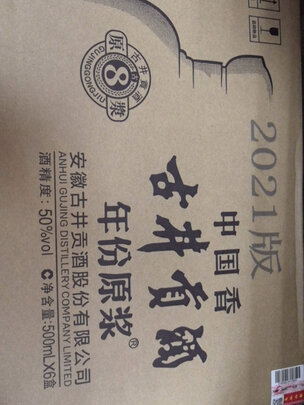 2021版
中国香
古井貢酒
年份原浆®
古井贡酒
原8浆
GUJINGGONGJIU
安徽古井贡酒股份有限公司
ANHUI GUJING DISTILLERY COMPANY LIMITED
酒精度：50%vol C 净含量：500mLX6盒